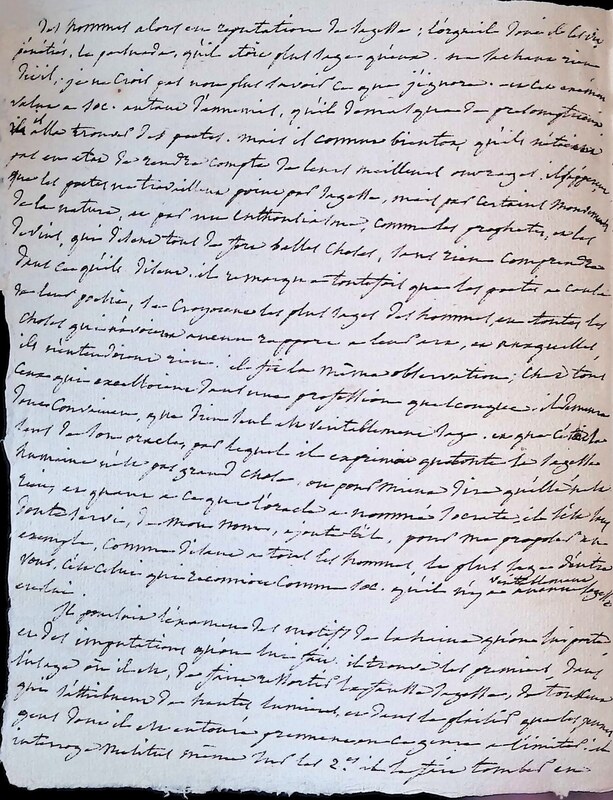 des hommes alors en reputation de sagesse ; l'orgueil dont il les vit
pénétrés, le persuada, qu'il étoit plus sage qu'eux. ne sachant rien
dit il, je ne crois pas non plus savoir ce que j'ignore. cet examen
valut a Soc. autant d'ennemis, qu'il demasqua de presomptueux
il alla trouver des poetes. mais il connut bientot qu'ils n'etoient
pas en etat de rendre compte de leurs meilleurs ouvrages. il s'apperçut
que les poetes ne travaillent point par sagesse, mais par certains mouvemens
de la nature, et par un enthousiasme, comme les prophetes, et les
devins, qui disent tous de fort belles choses, sans rien comprendre
dans ce qu'ils disent. il remarqua toutefois que les poetes a cause
de leur poesie, se croyoient les plus sages des hommes, en toutes les
choses qui n'avoient aucun rapport a leur art, et auxquelles
ils n'entendoient rien. il fit la même observation, chez tous
ceux qui excelloient dans une profession quelconque. il demeura
donc convaincu, que Dieu seul est veritablement sage. et que c'etoit le
sens de son oracle, par lequel il exprimoit que toute la sagesse
humaine n'est pas grand chose. ou pour mieux dire qu'elle n'est
rien, et quant a ce que l'oracle a nommé Socrate, il s'est sans
doute servi, de mon nom, ajoute t'il, pour me proposer en
exemple, comme disant a tous les hommes, le plus sage d'entre
vous, c'est celui qui reconnoit comme Soc. qu'il n'y a veritablement aucune sagesse
en lui.
Il poursuit l'examen des motifs de la haine qu'on lui porte
et des imputations qu'on lui fait. il trouve les premiers dans
l'usage où il est, de faire ressortir la fausse sagesse, de tous ceux
qui s'attribuent de hautes lumieres, et dans le plaisir que les jeunes
gens dont il est entouré prennent en ce genre a l'imiter. il
interroge Melitus même sur les 2.es il le fait tomber en